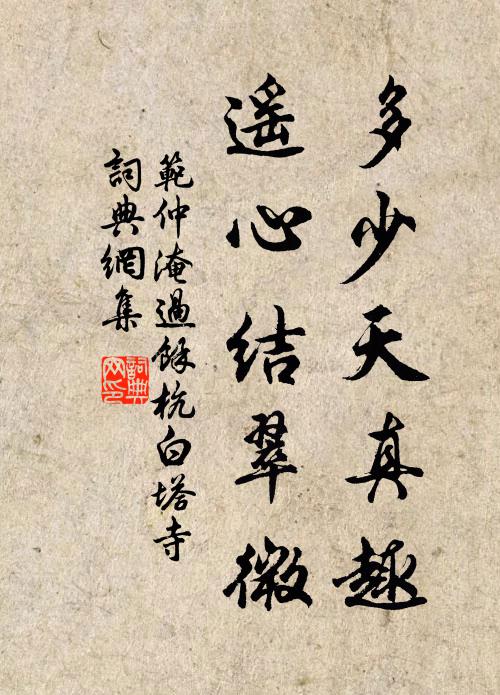 多少天真趣
遥心结翠微
範仲淹過餘杭白塔寺
詞典網集
詞典网印